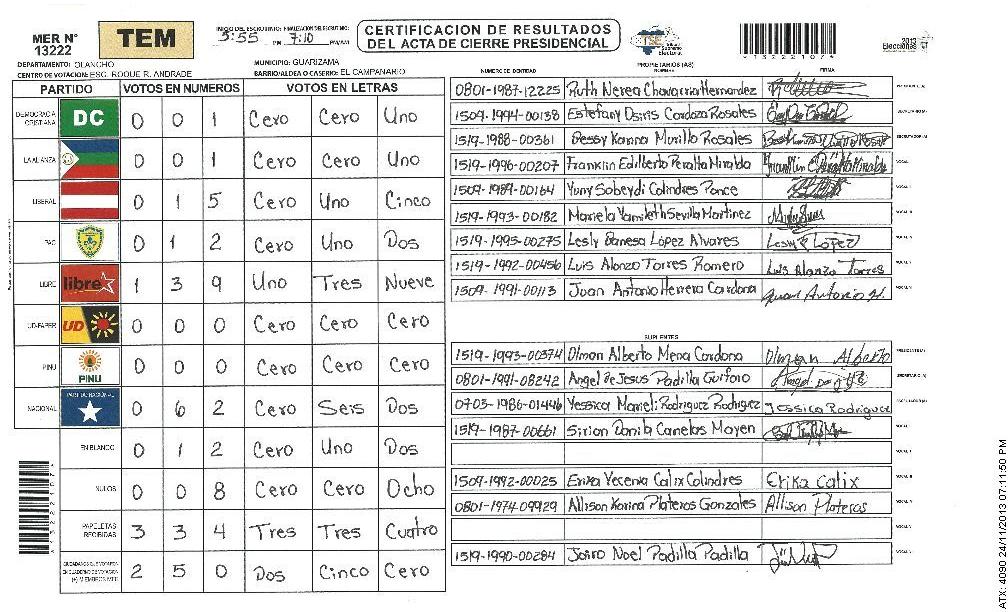 MER N° 13222
TEM
INICIO DEL ESCRUTINIO: FINALIZACION DEL ESCRUTINIO:
3:55 PM 7:10 PM/AM
CERTIFICACION DE RESULTADOS
DEL ACTA DE CIERRE PRESIDENCIAL
TSE Tribunal Supremo Electoral
2013
Elecciones
DEPARTAMENTO: OLANCHO
MUNICIPIO: GUARIZAMA
CENTRO DE VOTACION: ESC. ROQUE R. ANDRADE
BARRIO/ALDEA O CASERIO: EL CAMPANARIO
PARTIDO VOTOS EN NUMEROS VOTOS EN LETRAS
DEMOCRACIA CRISTIANA DC 0 0 1 Cero Cero Uno
LA ALIANZA 0 0 1 Cero Cero Uno
LIBERAL 0 1 5 Cero Uno Cinco
PAC 0 1 2 Cero Uno Dos
LIBRE libre 1 3 9 Uno Tres Nueve
UD-FAPER UD 0 0 0 Cero Cero Cero
PINU PINU 0 0 0 Cero Cero Cero
NACIONAL PARTIDO NACIONAL 0 6 2 Cero Seis Dos
EN BLANCO 0 1 2 Cero Uno Dos
NULOS 0 0 8 Cero Cero Ocho
PAPELETAS RECIBIDAS 3 3 4 Tres Tres Cuatro
CIUDADANOS QUE VOTARON EN CUADERNO DE VOTACION (+) MIEMBROS MER 2 5 0 Dos Cinco Cero
PROPIETARIOS (AS)
NUMERO DE IDENTIDAD NOMBRE FIRMA
0801-1987-12225 Ruth Nerea Chavarria Hernandez PRESIDENTE (A)
1509-1994-00138 Estefany Osiris Cardoza Rosales SECRETARIO (A)
1519-1988-00361 Bessy Karina Murillo Rosales ESCRUTADOR (A)
1519-1996-00207 Franklin Edilberto Peralta Miralda VOCAL I
1509-1989-00164 Yuny Sobeydi Colindres Ponce
1519-1993-00182 Mariela Yamileth Sevilla Martinez
1519-1995-00275 Lesly Danesa López Alvares Lesly López
1519-1992-00456 Luis Alonzo Torres Romero Luis Alonzo Torres
1509-1991-00113 Juan Antonio Herrera Cardona Juan Antonio H.
SUPLENTES
1519-1993-00374 Olman Alberto Mena Cardona Olman Alberto PRESIDENTE (A)
0801-1991-08242 Angel de Jesus Padilla Guifarro SECRETARIO (A)
0703-1986-01446 Yessica Marieli Rodriguez Rodriguez Jossica Rodriguez ESCRUTADOR (A)
1519-1987-00661 Sirian Danila Canelas Mayen
1509-1992-00025 Erika Yecenia Calix Colindres Erika Calix
0801-1974-09929 Allison Karina Plateros Gonzales Allison Plateros
1519-1990-00284 Jairo Noel Padilla Padilla
ATX: 4090 24/11/2013 07:11:50 PM